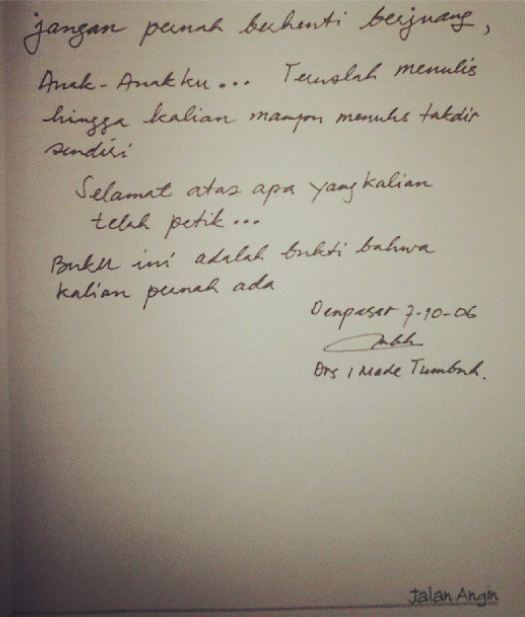 jangan pernah berhenti berjuang,
Anak-Anakku... Teruslah menulis
hingga kalian mampu menulis takdir
sendiri
Selamat atas apa yang kalian
telah petik...
Buku ini adalah bukti bahwa
kalian pernah ada
Denpasar 7-10-06
Drs I Made Tumbuh.
Jalan Angin